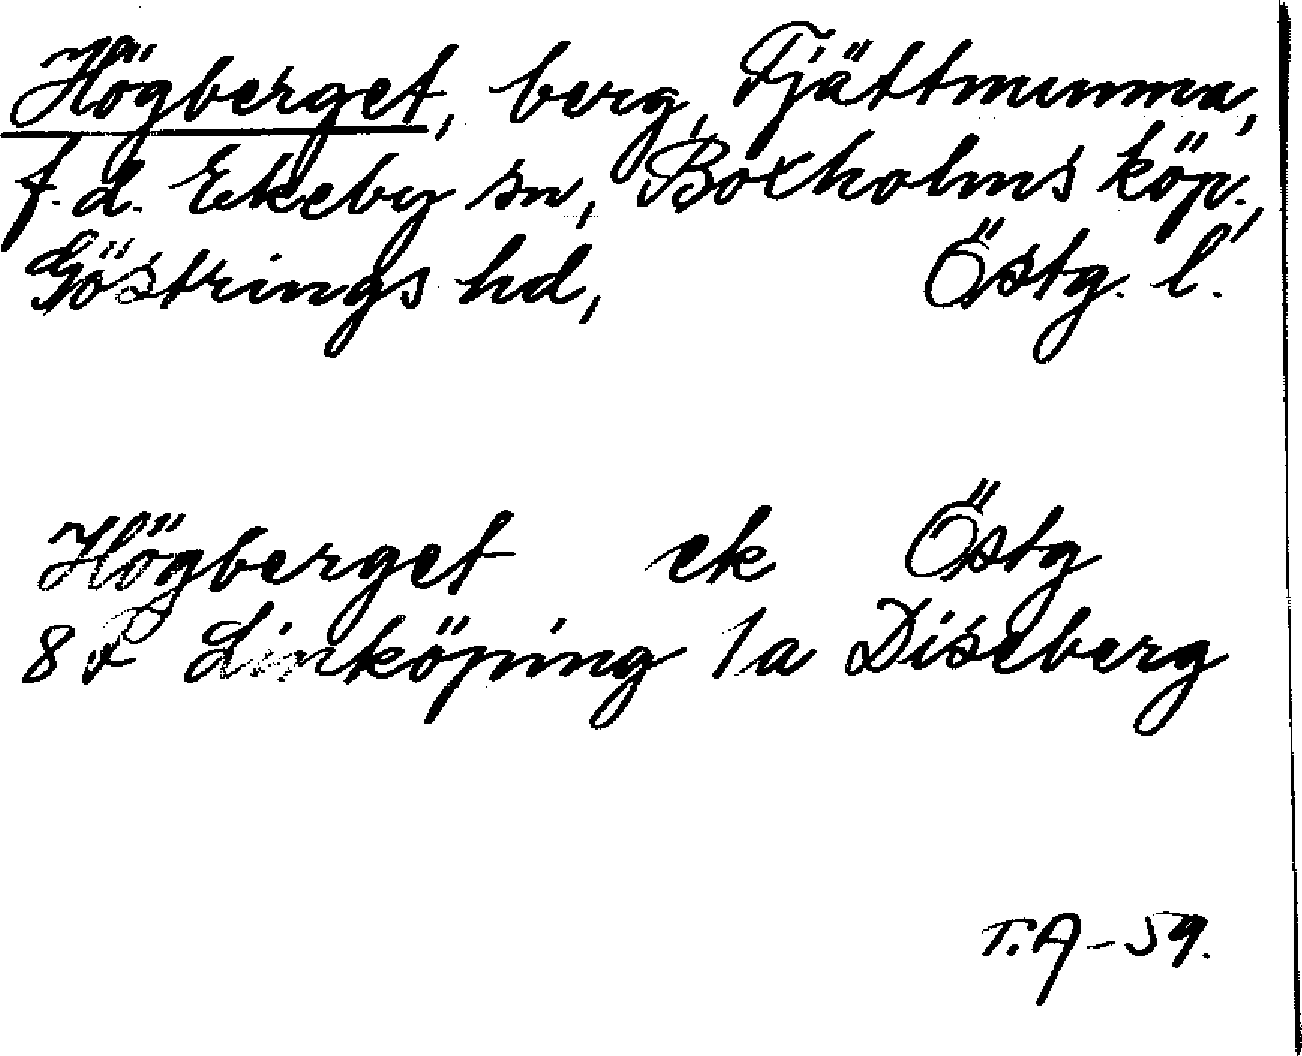 Högberget, berg, Fjättmunna,
f.d. Ekeby sn, Boxholms köp.,
Göstrings hd, Östg. l.
Högberget ek Östg
8 F Linköping 1a Diseberg
T.A-59.